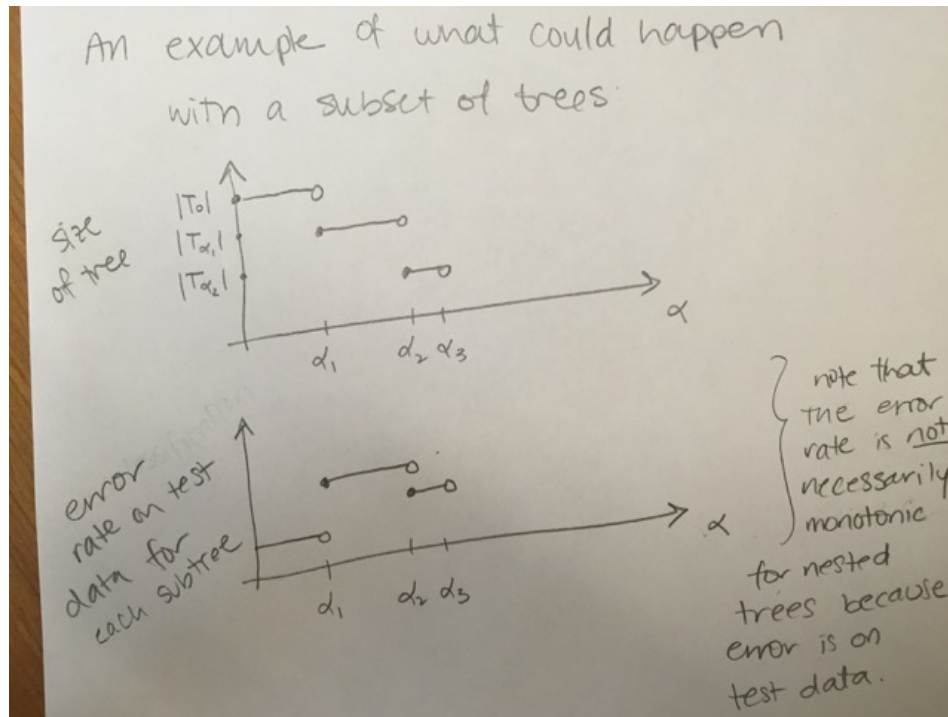 An example of what could happen
with a subset of trees
size
of tree
|T₀|
|Tα₁|
|Tα₂|
α₁ α₂ α₃
α
error
rate on test
data for
each subtree
α₁ α₂ α₃
α
note that
the error
rate is not
necessarily
monotonic
for nested
trees because
error is on
test data.